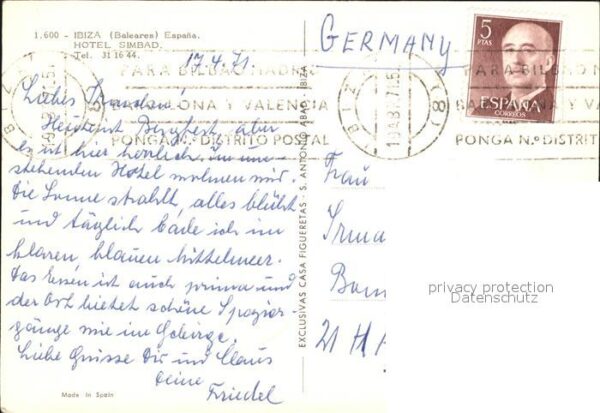 1.600 - IBIZA (Baleares) España.
HOTEL SIMBAD.
Tel. 31 16 44.
17.4.71.
GERMANY
5
PTAS
ESPAÑA
CORREOS
PARA BILBAO MADRID
BARCELONA Y VALENCIA
PONGA N.º DISTRITO POSTAL
PARA BILBAO M
BARCELONA Y VA
PONGA N.º DISTRIT
Liebes
Heute ist Bergfest, aber
es ist hier herrlich. Im um-
stehenden Hotel wohnen wir.
Die Sonne strahlt, alles blüht
und täglich bade ich im
klaren, blauen Mittelmeer.
Das Essen ist auch prima und
der Ort bietet schöne Spazier-
gänge wie im Gebirge.
Liebe Grüsse Dir und Claus
Deine
Friedel
Made in Spain
EXCLUSIVAS CASA FIGUERETAS - S. ANTONIO ABAD - IBIZA
Frau
Irma
21 HA
privacy protection
Datenschutz